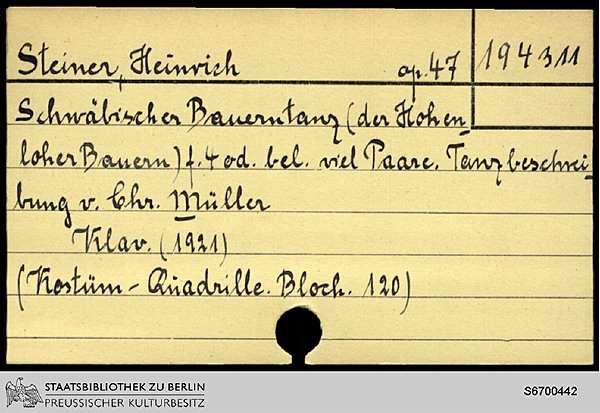 Steiner, Heinrich op. 47 194311
Schwäbischer Bauerntanz (der Hohen-
loher Bauern) f. 4 od. bel. viel Paare. Tanzbeschrei-
bung v. Chr. Müller
Klav. (1921)
(Kostüm - Quadrille. Bloch. 120)
STAATSBIBLIOTHEK ZU BERLIN
PREUSSISCHER KULTURBESITZ
S6700442